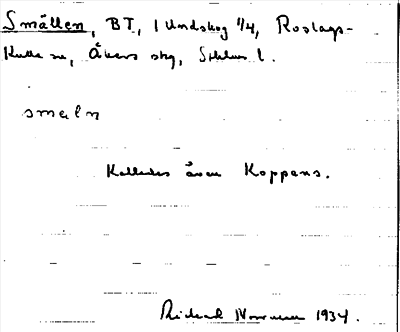 Smällen, BT, 1 Undskog 1/4, Roslags-
Kulla sn, Åkers skg, Sthlms l.
smɛln
Kallades även Koppens.
Rickard Norrman 1934.